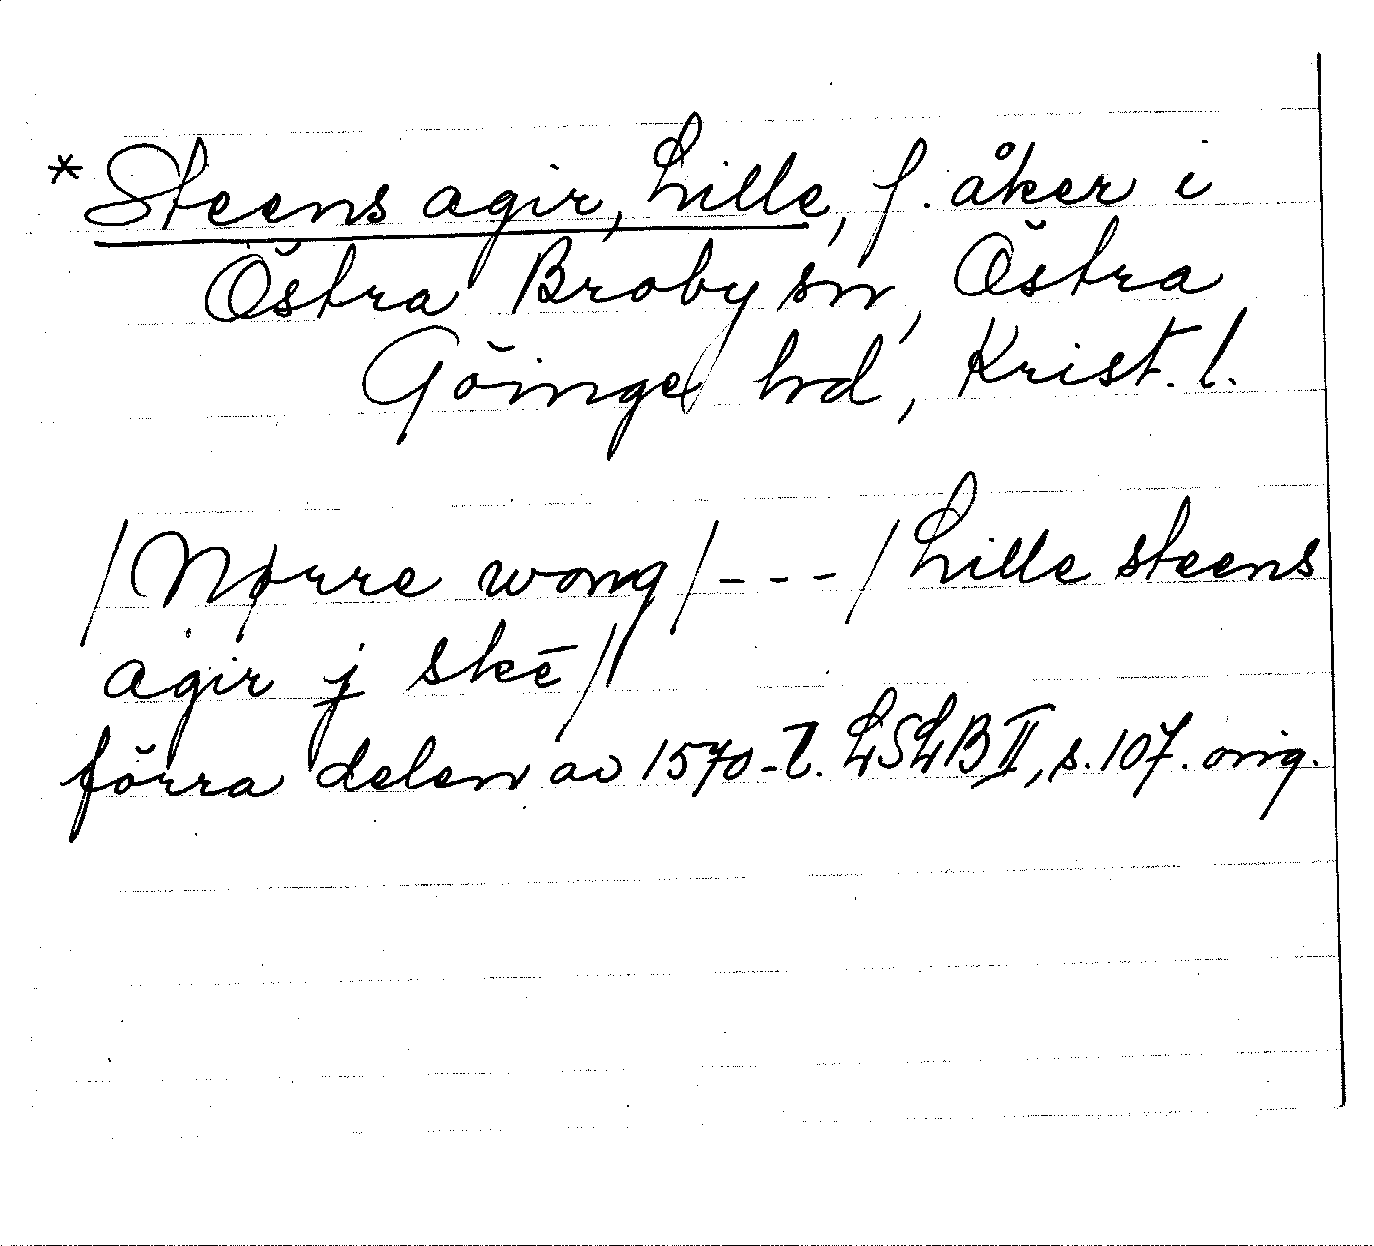 * Steens agir, Lille, f. åker i
Östra Broby sn, Östra
Göinge hd, Krist. l.
/Nørre wong/---/Lille steens
agir j skē//
förra delen av 1570-t. LSLB II, s. 107. orig.